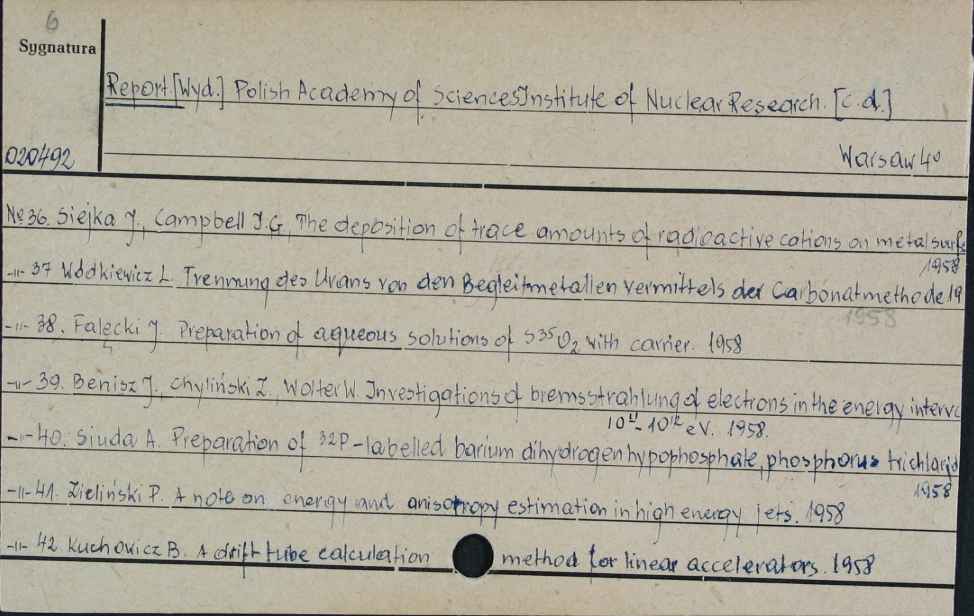 6
Sygnatura
Report [Wyd.] Polish Academy of Sciences Institute of Nuclear Research. [c.d.]
020492
Warsaw 4°
№ 36. Siejka J., Campbell I.G. The deposition of trace amounts of radioactive cations on metal surfs
1958
-"- 37 Wódkiewicz L. Trennung des Urans von den Begleitmetallen vermittels der Carbonatmethode 19
1958
-"- 38. Fałęcki J. Preparation of aqueous solutions of S³⁵O₂ with carrier. 1958
-"- 39. Benisz J., Chyliński Z., Wolter W. Investigations of bremsstrahlung of electrons in the energy interva
10¹¹-10¹² eV. 1958.
-"- 40. Siuda A. Preparation of ³²P-labelled barium dihydrogen hypophosphate, phosphorus trichlorid
1958
-"- 41. Zieliński P. A note on energy and anisotropy estimation in high energy jets. 1958
-"- 42. Kuchowicz B. A drift tube calculation method for linear accelerators. 1958